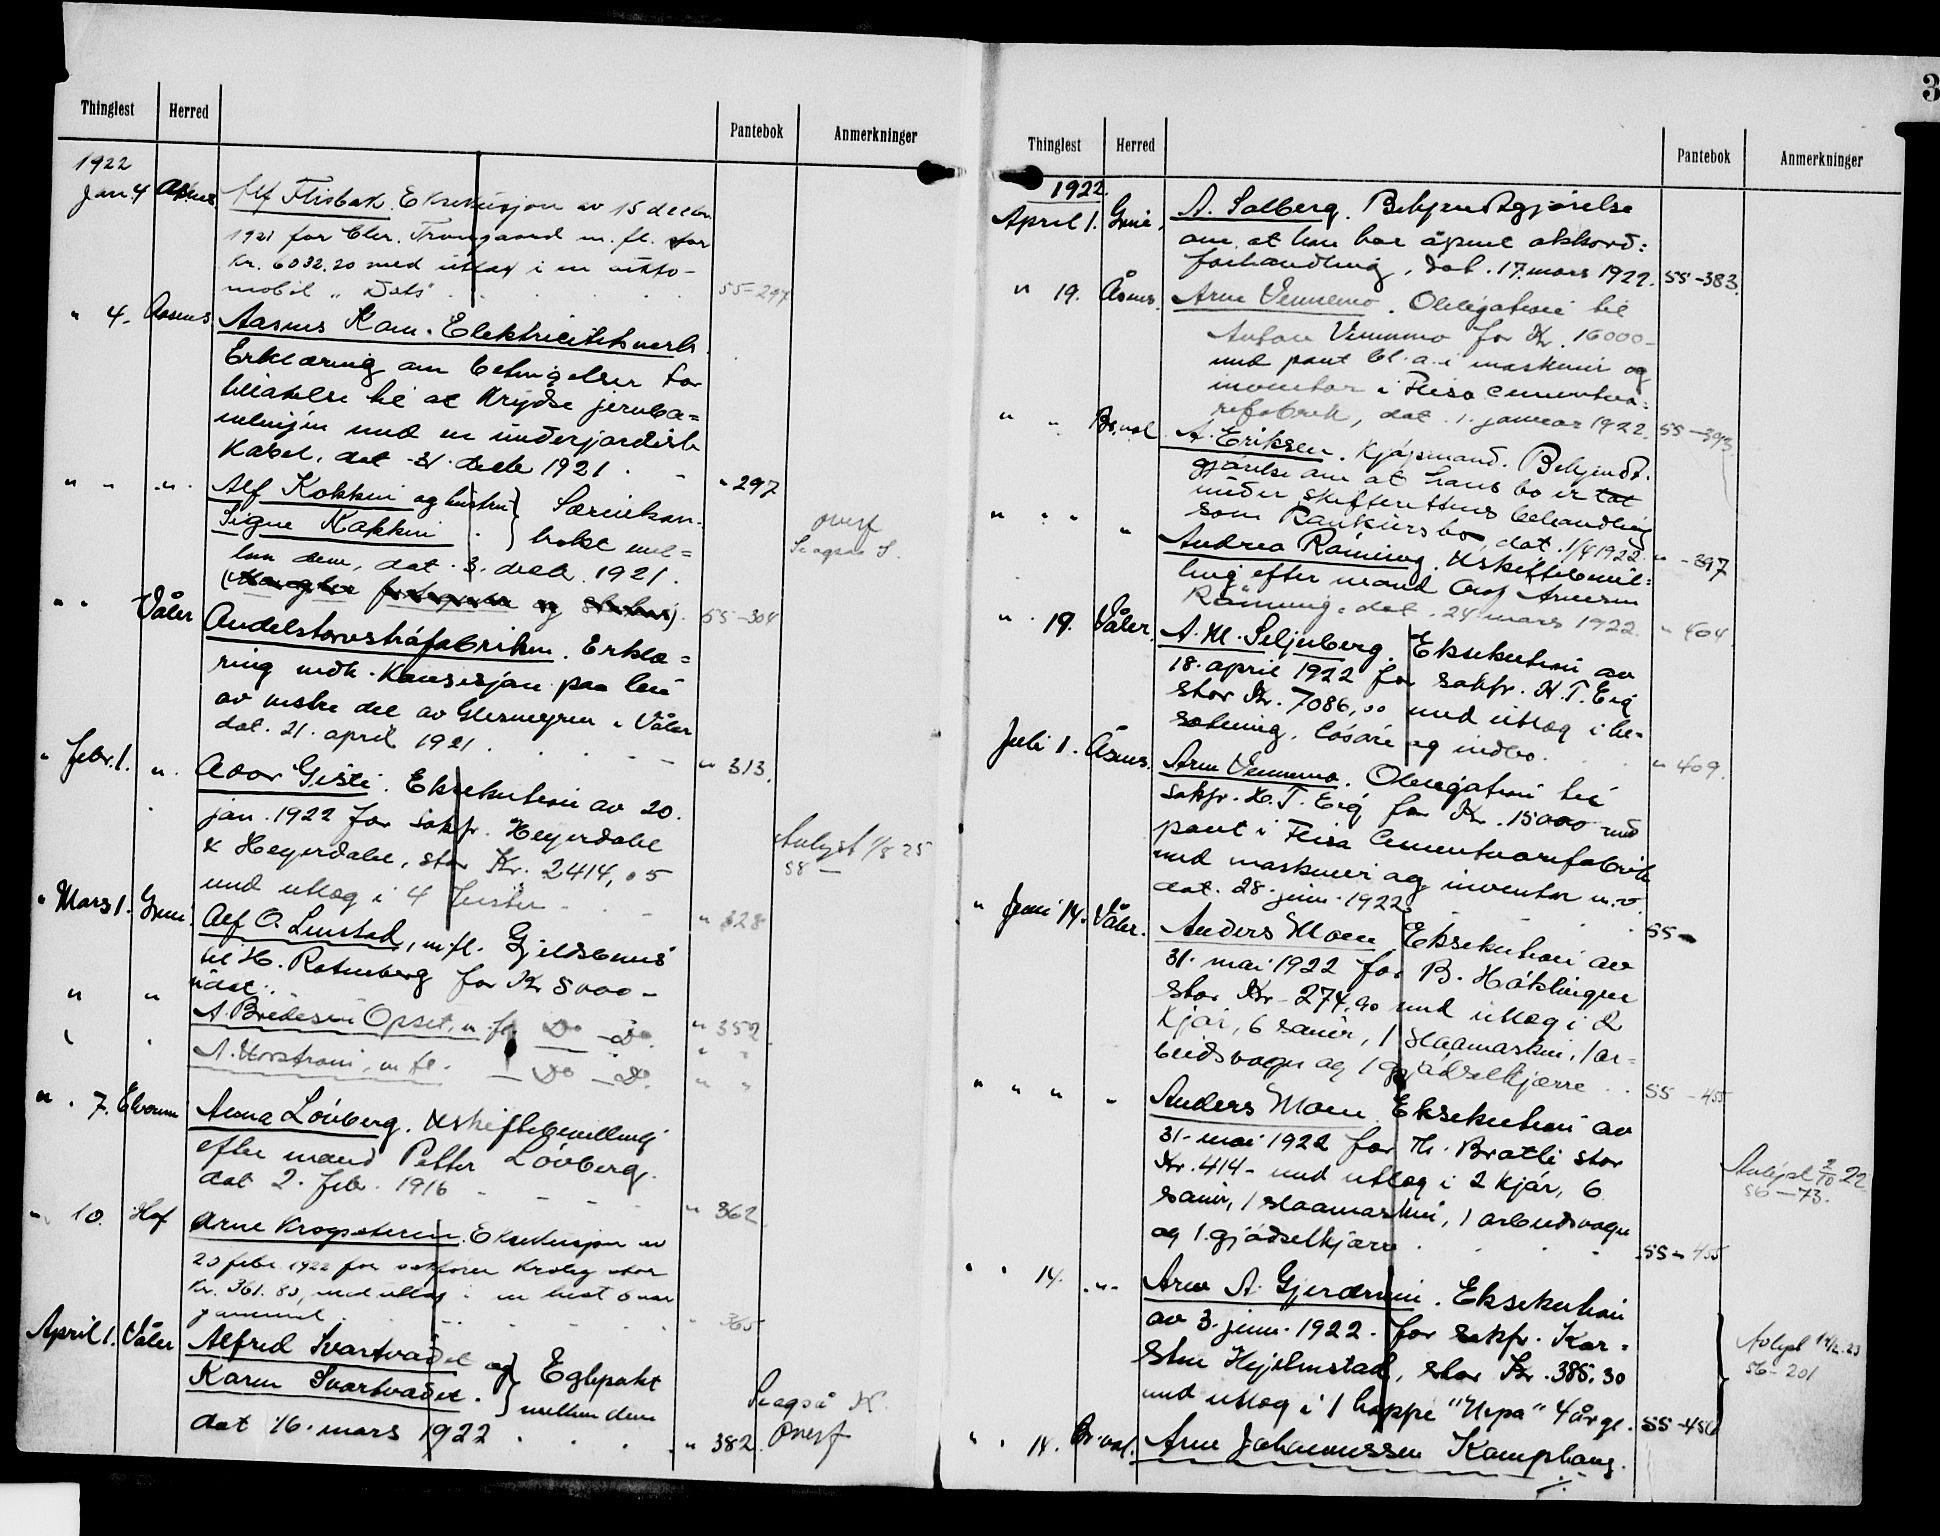 Thinglest Herred Pantebok Anmerkninger
1922
Jan 4 Aasnes Alf Flisbak. Eksekusjon av 15 decbr.
1921 for Chr. Trangaard m. fl. stor
Kr. 6032.20 med utlæg i en auto-
mobil "
55-297
" 4. Aasnes Aasnes Kom. Elektricitetsverk
Erklæring om betingelser for
tillatelse til at krydse jernba=
nelinjen med en underjordisk
Kabel, dat 31. decbr 1921. " 297
" " " Alf Kokkin og hustru } Særeiekon-
Signe Kokkin } trakt mel=
lem dem, dat. 3. decbr. 1921.
55-304
overf
Se også S.
" " Våler Andelstorvstrøfabrikken. Erklæ=
ring vedk. Konsesjon paa leie
av vestre del av Glesmyren i Våler
dat. 21. april 1921. " 313.
" Febr. 1. " Ador Gisti. Eksekution av 20.
jan. 1922 for sakfr. Heyerdahl
& Heyerdahl, stor Kr. 2414,05
med utlæg i 4 hester " 328
Avlyst 1/8 25
58 —
" Mars 1. Grue Alf O. Linstad, m.fl. Gjeldsbrev
til H. Rotenberg for Kr 8000-
udat.
" " A. Bredesen Opset, m. fl. Do Do " 352
A. , m fl. Do Do " "
" " 7. Elverum Anna Lövberg. Uskiftebevilling
efter mand Petter Lövberg.
dat 2. feb. 1916 " 362
" 10. Hof Arne Krogseteren. Eksekusjon av
20 febr. 1922 for sakfører Kroby stor
Kr. 361.80, med utlæg i en hest 6 aar
gammel " 365
April 1. Våler Alfred Svartvadet og } Egtepakt
Karen Svartvadet. } mellem dem
dat 16. mars 1922 " 382.
Se også K.
Overf
3
Thinglest Herred Pantebok Anmerkninger
1922.
April 1. Grue. A. Solberg. Bekjendtgjørelse
om, at han har åpnet akkord=
forhandling, dat. 17. mars 1922. 55-383.
" 19. Åsnes. Arne Vennemo. Obligation til
Anton Vennemo for Kr. 16000-
med pant bl. a. i maskiner og
inventar i Flisa cementva=
refabrik, dat. 1. januar 1922. 55-393
" " Br.vol A. Eriksen. Kjøpmand. Bekjendt.
gjørelse om at hans bo er tat
under skifterettens behandling
som Konkursbo, dat. 1/4 1922. " -397
" " " " Andrea Rönning. Uskiftebevil=
ling efter mand Olof Arnesen
Rönning, dat. 24 mars 1922. " 404
" 19. Våler. A. M. Seljeberg. Eksekution av
18. april 1922 for sakfr. H. T. Eig
stor Kr. 7086,00 med utlæg i be-
sætning, lösöre og indbo. " 409.
Juli 1. Åsnes. Arne Vennemo. Obligation til
sakfr. H. T. Eig for Kr. 15000 med
pant i Flisa Cementvarefabrik
med maskiner og inventar m.v.
dat. 28. juni 1922. 55-
" Juni 14. Våler. Anders Moen. Eksekution av
31. mai 1922 for B. Haklingen
stor Kr. 274,90 med utlæg i 2
kjör, 6 sauer, 1 slaamaskin, 1 ar-
beidsvogn og 1 gjödselkjærre 55-455
" " " " Anders Moen. Eksekution av
31. mai 1922 for Th. Bratli stor
Kr. 414- med utlæg i 2 kjör, 6
sauer, 1 slaamaskin, 1 arbeidsvogn
og 1. gjödselkjærre. 55-455
Avlyst 2/10 22
56-73.
" " 14. " Arne A. Gjerdrum. Eksekution
av 3. juni. 1922. for sakfr. Kar-
sten Hjelmstad, stor Kr. 385,30
med utlæg i 1 hoppe "Nepa" 4 årg. 55-456
Avlyst 14/2.23
56-201
" " 14. Br.vol. Arne Johannessen Kamphaug.